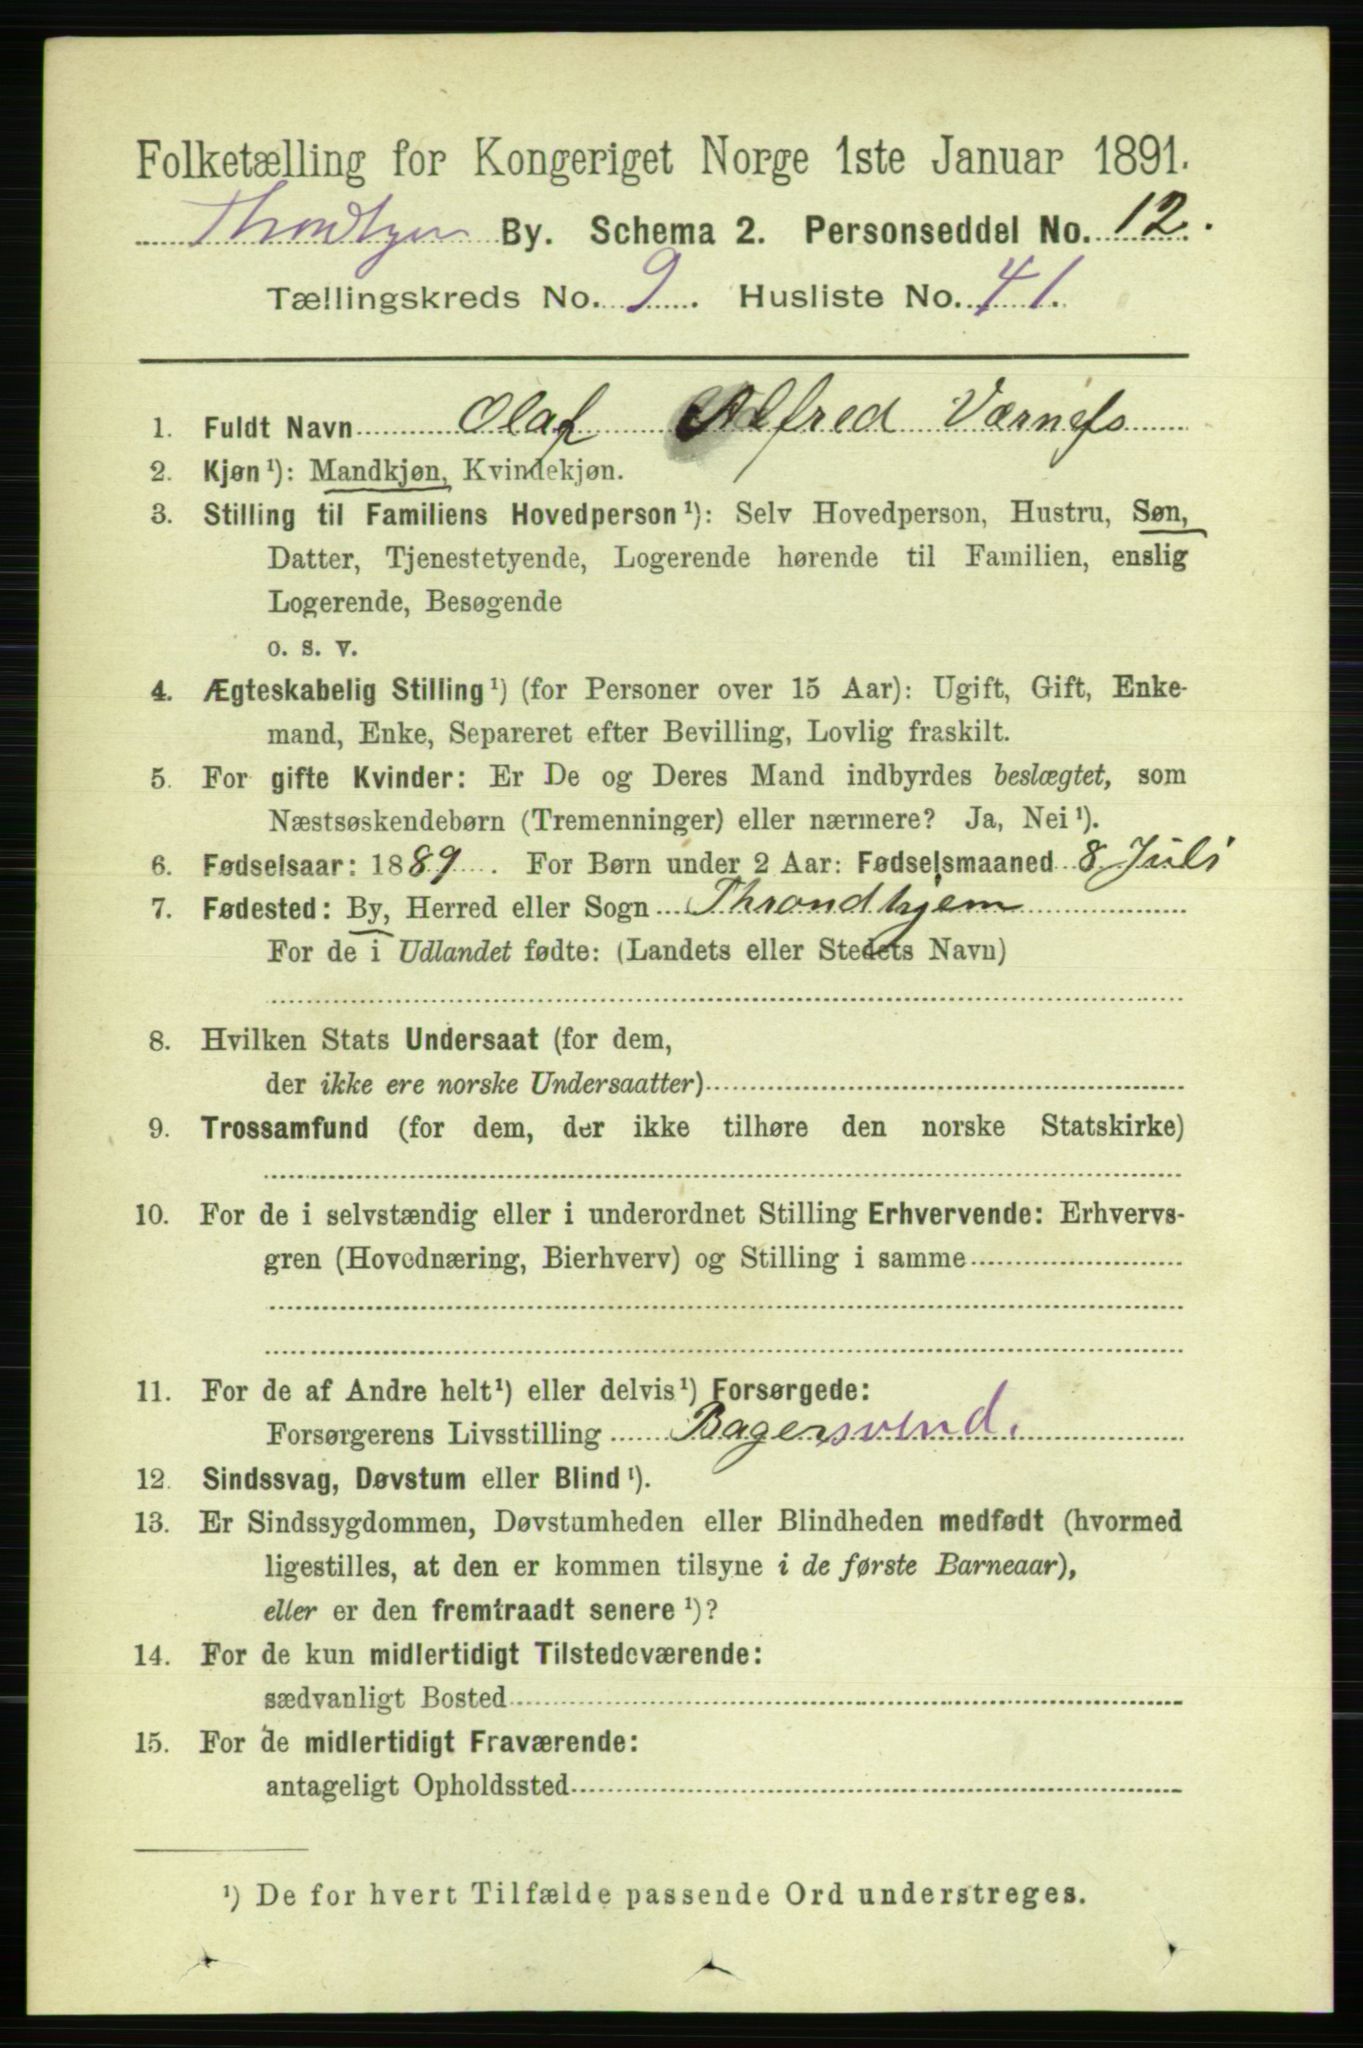 Folketælling for Kongeriget Norge 1ste Januar 1891.
Throndhjem By. Schema 2. Personseddel No. 12.
Tællingskreds No. 9. Husliste No. 41.
1. Fuldt Navn Olaf Alfred Værnefs
2. Kjøn ¹): Mandkjøn, Kvindekjøn.
3. Stilling til Familiens Hovedperson ¹): Selv Hovedperson, Hustru, Søn,
Datter, Tjenestetyende, Logerende hørende til Familien, enslig
Logerende, Besøgende
o. s. v.
4. Ægteskabelig Stilling ¹) (for Personer over 15 Aar): Ugift, Gift, Enke-
mand, Enke, Separeret efter Bevilling, Lovlig fraskilt.
5. For gifte Kvinder: Er De og Deres Mand indbyrdes beslægtet, som
Næstsøskendebørn (Tremenninger) eller nærmere? Ja, Nei ¹).
6. Fødselsaar: 1889. For Børn under 2 Aar: Fødselsmaaned 8 Juli
7. Fødested: By, Herred eller Sogn Throndhjem
For de i Udlandet fødte: (Landets eller Stedets Navn)
8. Hvilken Stats Undersaat (for dem,
der ikke ere norske Undersaatter)
9. Trossamfund (for dem, der ikke tilhøre den norske Statskirke)
10. For de i selvstændig eller i underordnet Stilling Erhvervende: Erhvervs-
gren (Hovednæring, Bierhverv) og Stilling i samme
11. For de af Andre helt ¹) eller delvis ¹) Forsørgede:
Forsørgerens Livsstilling Bagersvend.
12. Sindssvag, Døvstum eller Blind ¹).
13. Er Sindssygdommen, Døvstumheden eller Blindheden medfødt (hvormed
ligestilles, at den er kommen tilsyne i de første Barneaar),
eller er den fremtraadt senere ¹)?
14. For de kun midlertidigt Tilstedeværende:
sædvanligt Bosted
15. For de midlertidigt Fraværende:
antageligt Opholdssted
¹) De for hvert Tilfælde passende Ord understreges.